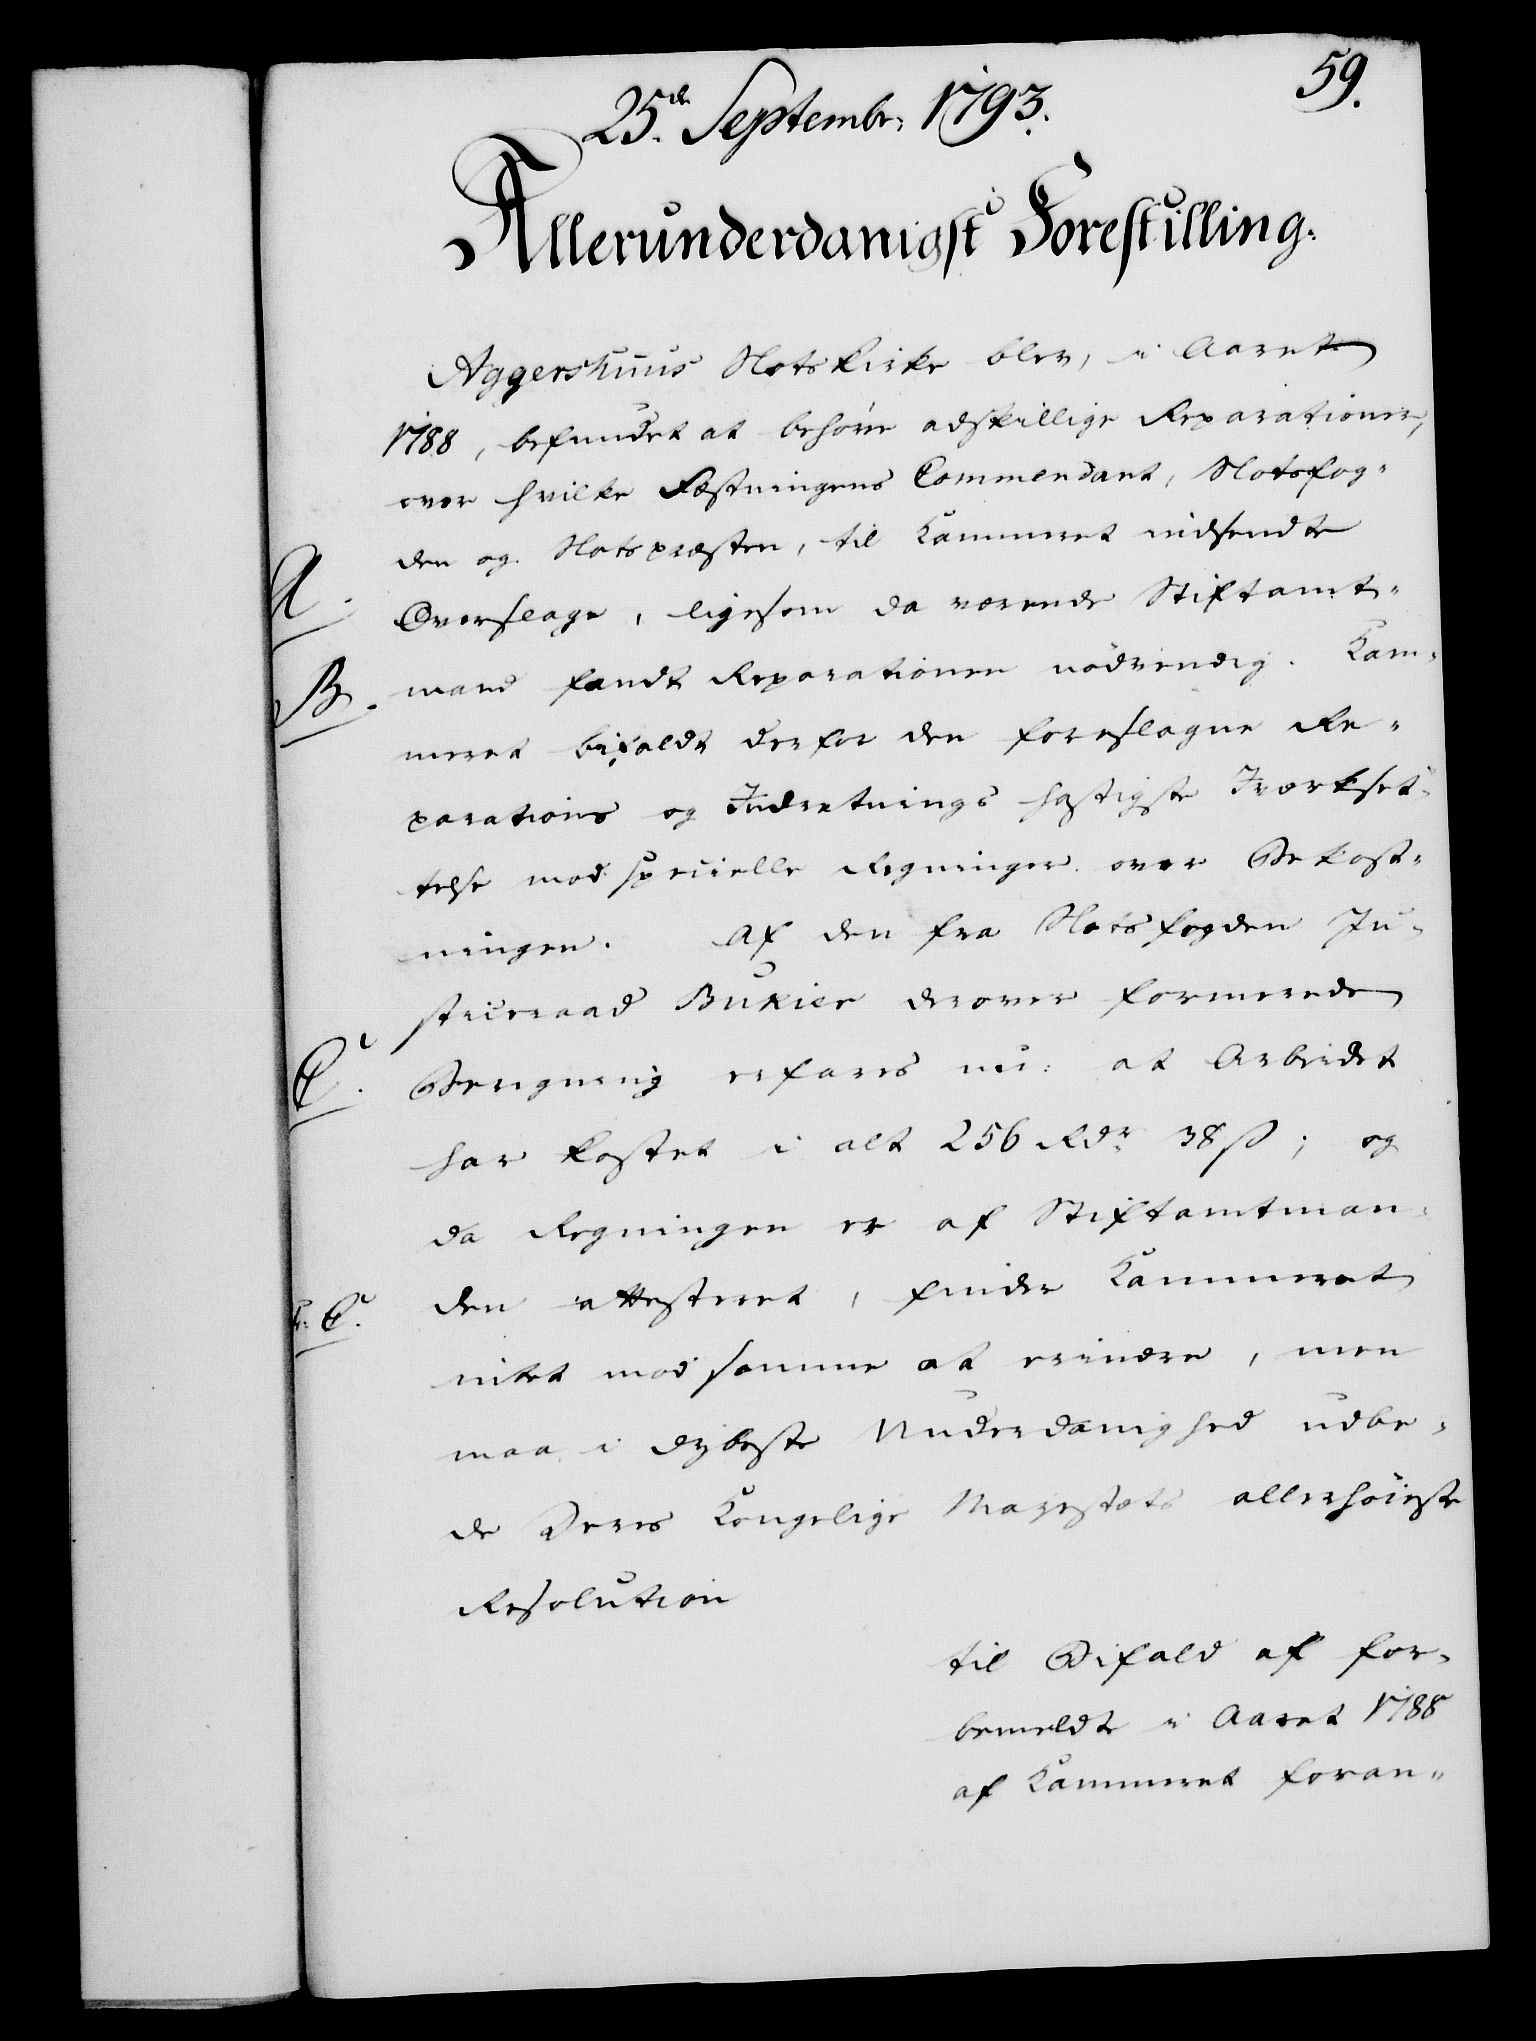 59.
25de Septembr: 1793.
Allerunderdanigst Forestilling.
Aggershuus Slots Kirke blev, i Aaret
1788, befundet at behöve adskillige Reparationer,
over hvilke Fæstningens Commendant, Slotsfog-
den og Slotspræsten, til Kammeret indsendte
A.
Overslage, ligesom da værende Stiftamt-
B.
mand fandt Reparationen nödvendig. Kam-
meret bifaldt derfor den foreslagne Re-
parations og Indretnings hastigste Iværkset-
telse mod specielle Regninger over Bekost-
ningen. Af den fra Slotsfogden Ju-
sticeraad Bukier derover formerede
C.
Beregning erfares nu: at Arbeidet
har kostet i alt 256 Rdr 38 ß; og
da Regningen er af Stiftamtman-
C.
den attesteret, finder Kammeret
intet mod samme at erindre, men
maa i dybeste Underdanighed udbe-
de Deres Kongelige Majestæts allerhöieste
Resolution
til Bifald af for-
bemeldte i Aaret 1788
af Kammeret foran-